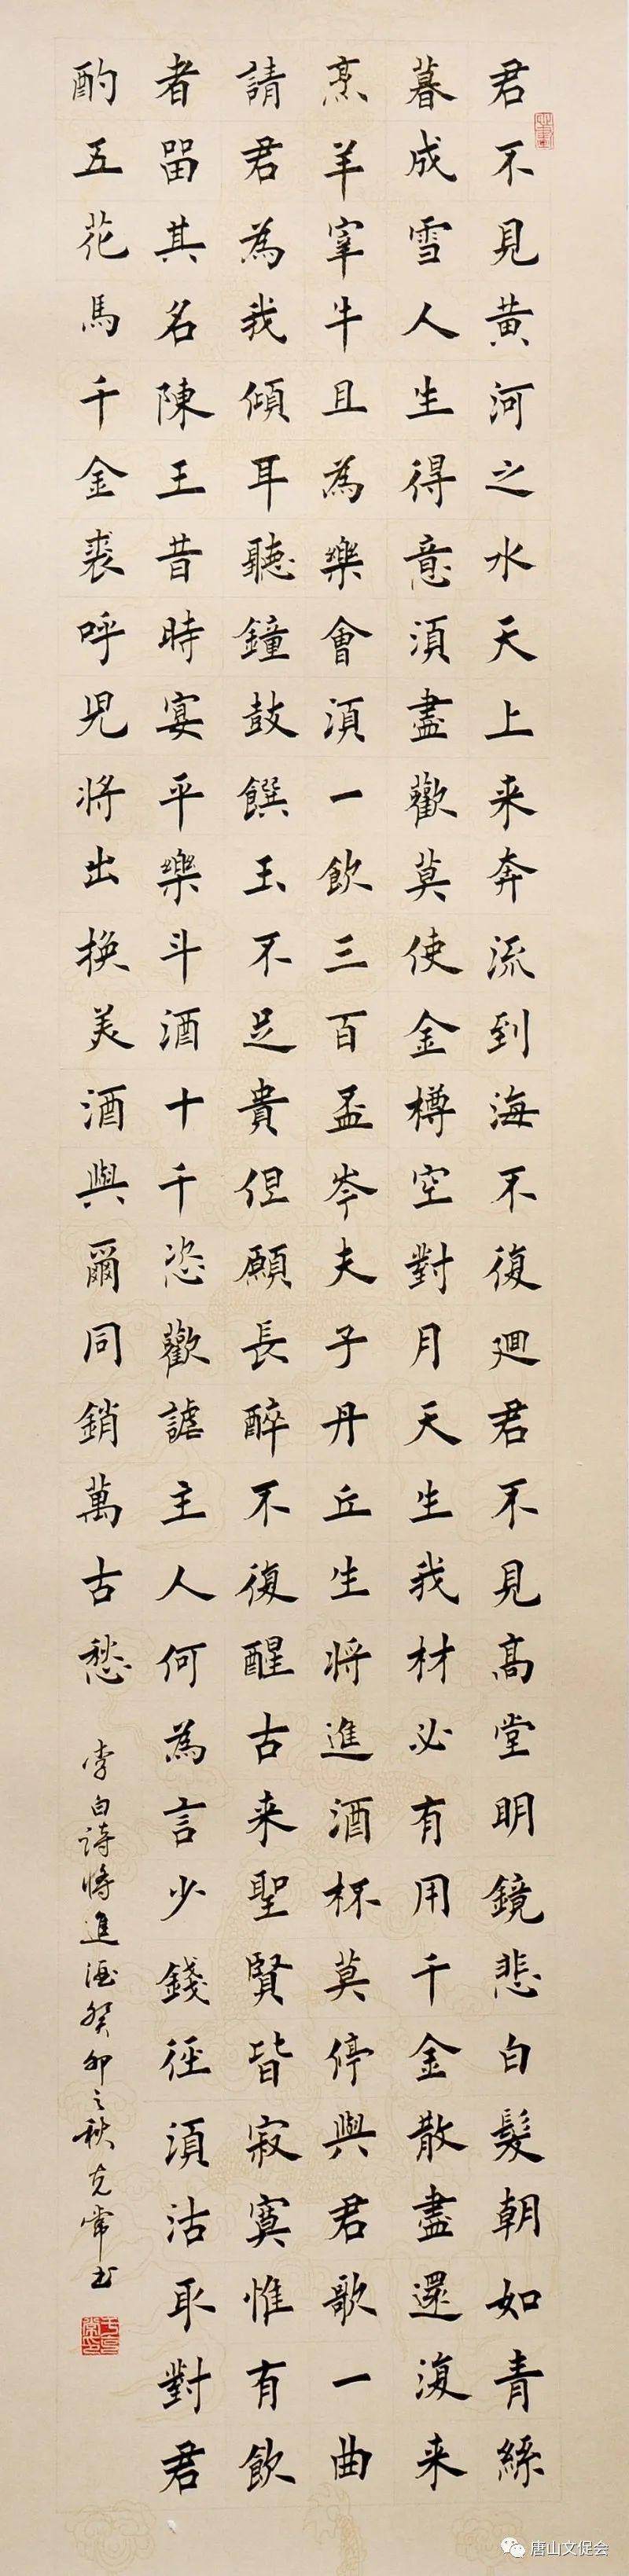 君不見黃河之水天上来奔流到海不復迴君不見高堂明鏡悲白髮朝如青絲
暮成雪人生得意須盡歡莫使金樽空對月天生我材必有用千金散盡還復来
烹羊宰牛且為樂會須一飲三百盃岑夫子丹丘生将進酒杯莫停與君歌一曲
請君為我傾耳聽鐘鼓饌玉不足貴但願長醉不復醒古来聖賢皆寂寞惟有飲
者留其名陳王昔時宴平樂斗酒十千恣歡謔主人何為言少錢徑須沽取對君
酌五花馬千金裘呼児将出換美酒與爾同銷萬古愁
李白詩将進酒癸卯之秋克常书
唐山文促会